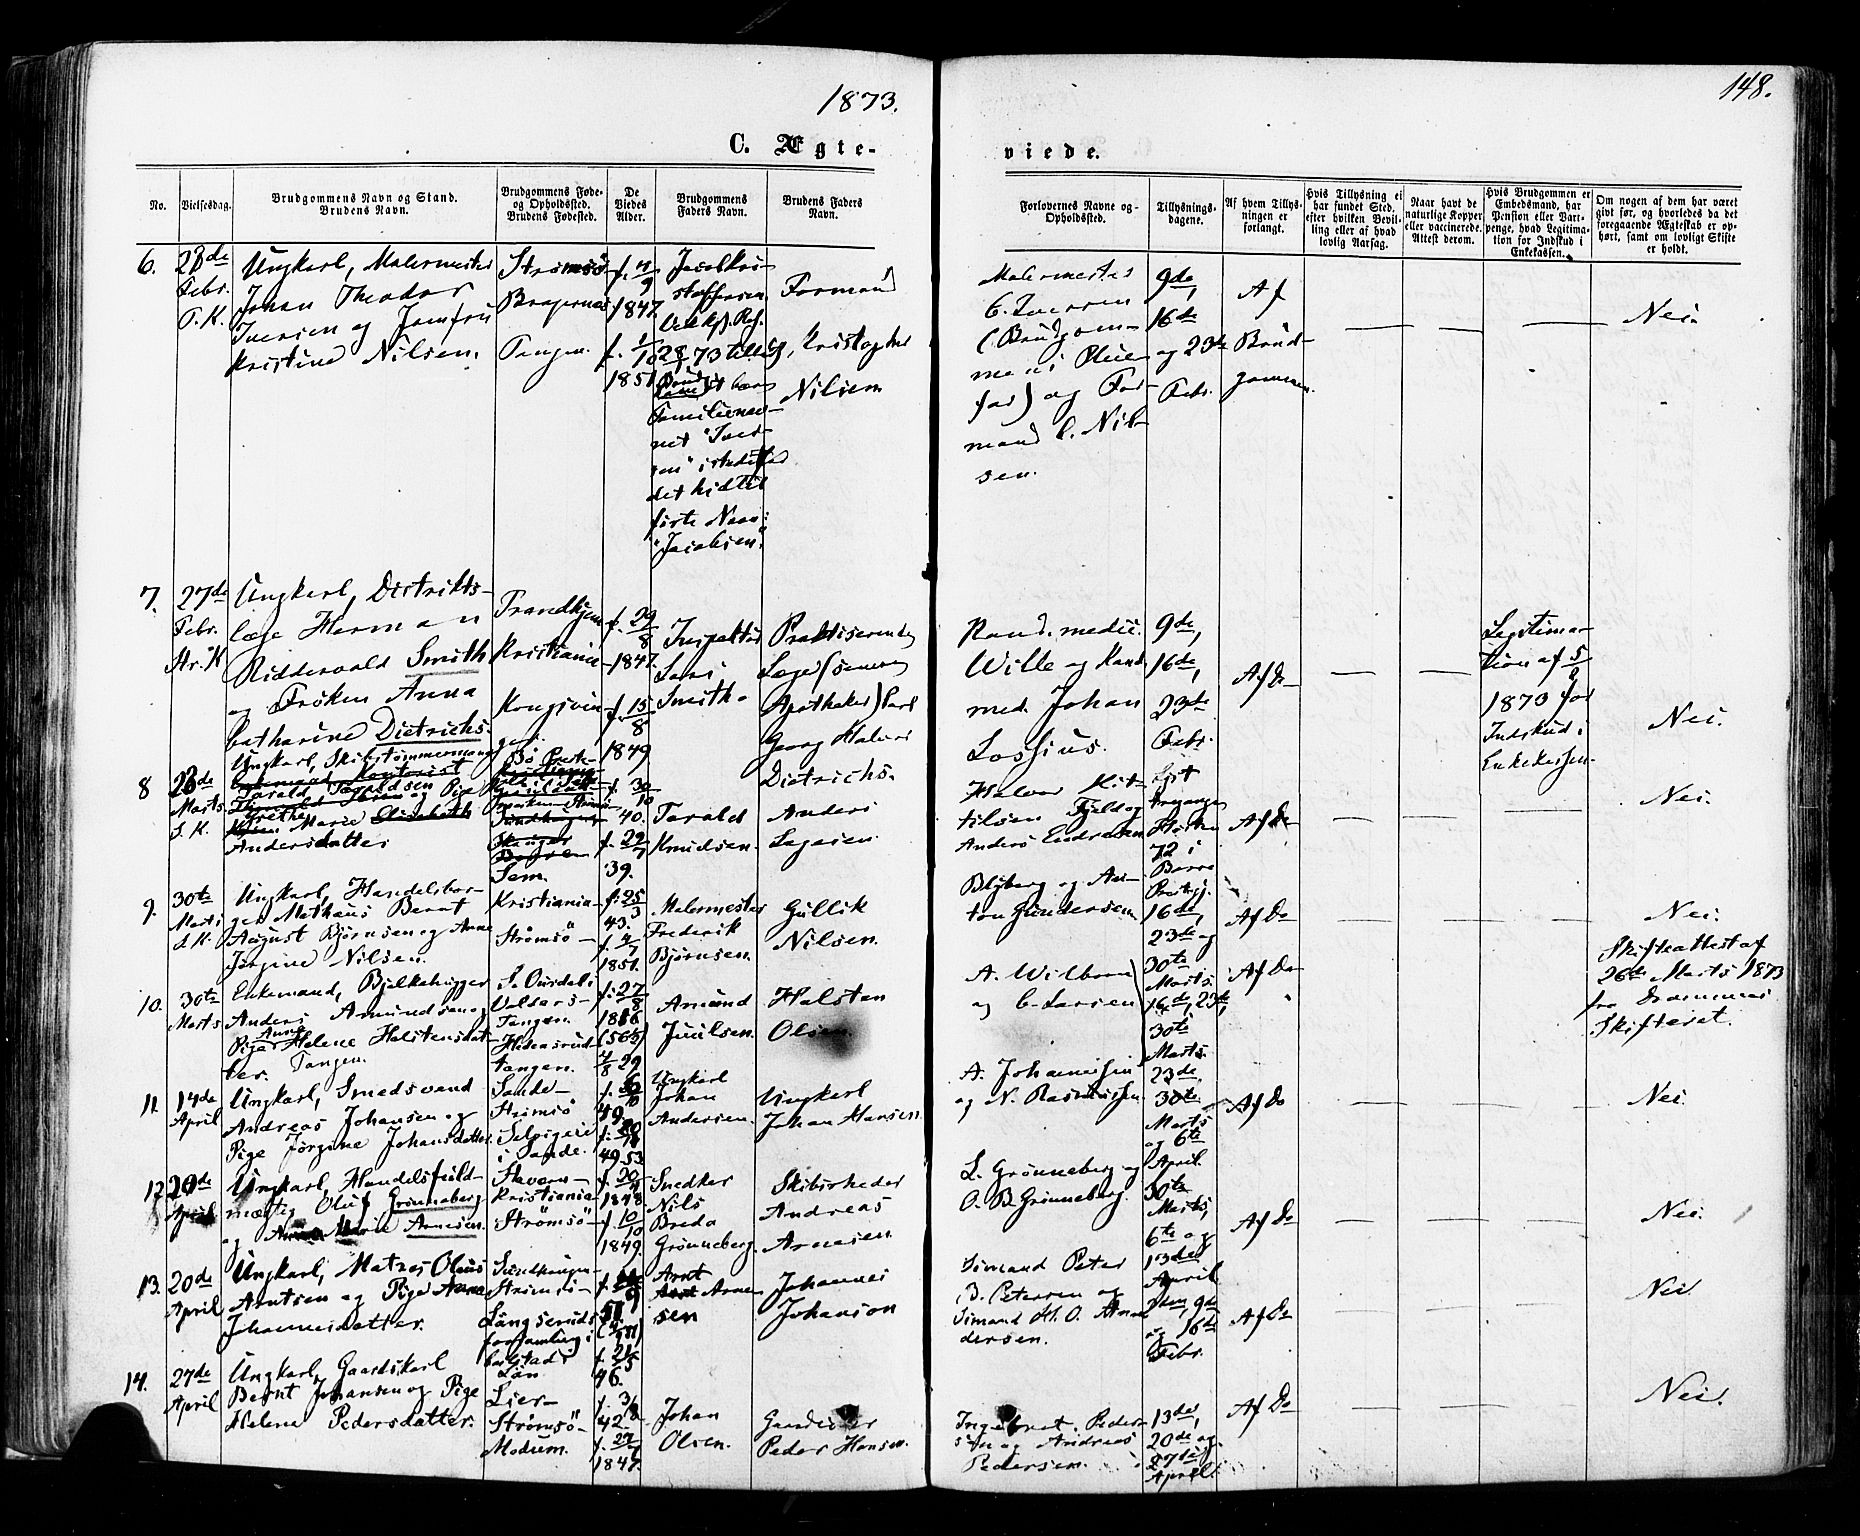 1873.
148.
C. Ægte-
viede.
No.
Vielsesdag.
Brudgommens Navn og Stand.
Brudens Navn.
Brudgommens Føde-
og Opholdssted.
Brudens Fødested.
De
Viedes
Alder.
Brudgommens
Faders Navn.
Brudens Faders
Navn.
Forlovernes Navne og
Opholdssted.
Tillysnings-
dagene.
Af hvem Tillys-
ningen er
forlangt.
Hvis Tillysning ei
har fundet Sted,
efter hvilken Bevil-
ling eller af hvad
lovlig Aarsag.
Naar havt de
naturlige Kopper
eller vaccinerede.
Attest derom.
Hvis Brudgommen er
Embedsmand, har
Pension eller Vart-
penge, hvad Legitima-
tion for Indskud i
Enkekassen.
Om nogen af dem har været
givt før, og hvorledes da det
foregaaende Ægteskab er op-
hørt, samt om lovligt Skifte
er holdt.
6.
Febr.
T. K.
Ungkarl, Malermester
Johan Theodor
Iversen og Jomfru
Kristine Nilsen.
Strømsø
Bragernæs
Tangen.
f. 4/9
1847
f. 1/10
1851
Jacob Kri-
stoffersen.
Familienav-
net "Iver-
sen" istedetfor
det hidtil
førte Navn:
"Jacobsen".
Formand
Kristopher
Nilsen
Malermester
C. Iversen
(Brudgom-
mens Pleie-
far) og For-
mand C. Nil-
sen.
9de,
16de
og 23de
Febr.
Af
Brud-
gommen.
Nei.
7.
27de
Febr.
Str. K
Ungkarl, Distrikts-
læge Herman
Ridderwold Smith
og Frøken Anna
Catharine Dietrichs.
Trondhjem
Kristiania
Kongsvin-
ger.
f. 29/8
1847.
f. 15/8
1849
Inspektør
Lars
Smith.
Praktiserende
Læge (senere
Apotheker) Carl
Georg Halvor
Dietrichs.
Kand. medic.
Wille og Kand.
med. Johan
Lossius.
9de,
16de,
23de
Febr.
Af Do
Legitima-
tion af 5/2
1873 for
Indskud i
Enkekassen.
Nei.
8
23de
Marts
S. K.
Ungkarl, Skibstømmermand
Tarald Taraldsen og Pige
Grethe Marie
Andersdatter
Bø Præste-
Sem.
f. 30/10
40.
f. 29/7
39.
Tarald
Knudsen.
Anders
Halvor Kit-
tilsen Fjeld og
Anders Endresen
72 i
Borre
Præstegj.
Af Do
Nei.
9.
30te
Marts
S. K.
Ungkarl, Handelsbor-
ger Mathæus Bernt
August Bjørnsen og Anne
Jørgine Nilsen.
Kristiania-
Strømsø-
f. 25/3
43.
f. 4/7
1851.
Malermester
Frederik
Bjørnsen.
Gullik
Nilsen.
Blyberg og An-
ton Gundersen
16de,
23de og
30te
Marts.
Af Do
Nei.
10.
30te
Marts
Enkemand, Bjelkehugger
Anders Amundsen og
Pige Anne Helene Halstensdat-
ter. Tangen.
Valders-
Tangen.
tangen.
f. 27/8
1816
(56½)
7/8 29
Amund
Juulsen.
Halsten
Olsen
A. Wilborn
og C. Larsen
16de, 23de,
30te
Marts.
Af Do
Skifteattest af
26de Marts 1873
fra Drammens
Skifteret.
11.
14de
April
Ungkarl, Smedsvend
Andreas Johansen og
Pige Jørgine Johansdatter
Sande-
Strømsø
Selvigeie
i Sande.
49.
Ungkarl
Johan
Andersen.
Ungkarl
Johan Hansen.
A. Johannesen
og N. Rasmussen
23de,
30te
Marts
og 6te
April.
Af Do
Nei.
12.
20de
April
Ungkarl, Handelsfuld-
mægtig Oluf Grønneberg
og Anna Marie Arnesen.
Stavern-
Kristiania-
Strømsø-
1848
f. 10/10
1849.
Snedker
Nils
Breda
Grønneberg.
Skibsreder
Andreas
Arnesen
L. Grønneberg og
O. B. Grønneberg.
30te
Marts,
6te og
13de
April
Af Do
Nei.
13.
20de
April
Ungkarl, Matros Olaus
Arntsen og Pige Anna
Johannesdatter.
Sundhaugen-
Strømsø-
Långserud
församling i
Carlstads
Län
f. 21/5
46.
Arnt
Arnen
sen
Johannes
Johanson
Simand Peter
B. Petersen og
Simand H. O. An-
dersen.
2den, 9de
og 16de
Febr.
Af Do
Nei.
14.
27de
April
Ungkarl, Gaardskarl
Bernt Johansen og Pige
Helene Pedersdatter.
Lier-
Strømsø-
Modum.
f. 3/8
42
f. 27/7
1847.
Johan
Olsen.
Peder Hansen.
Ingebret Peder-
sen og Andreas
Pedersen.
13de,
20de og
27de
April
Af Do
Nei.